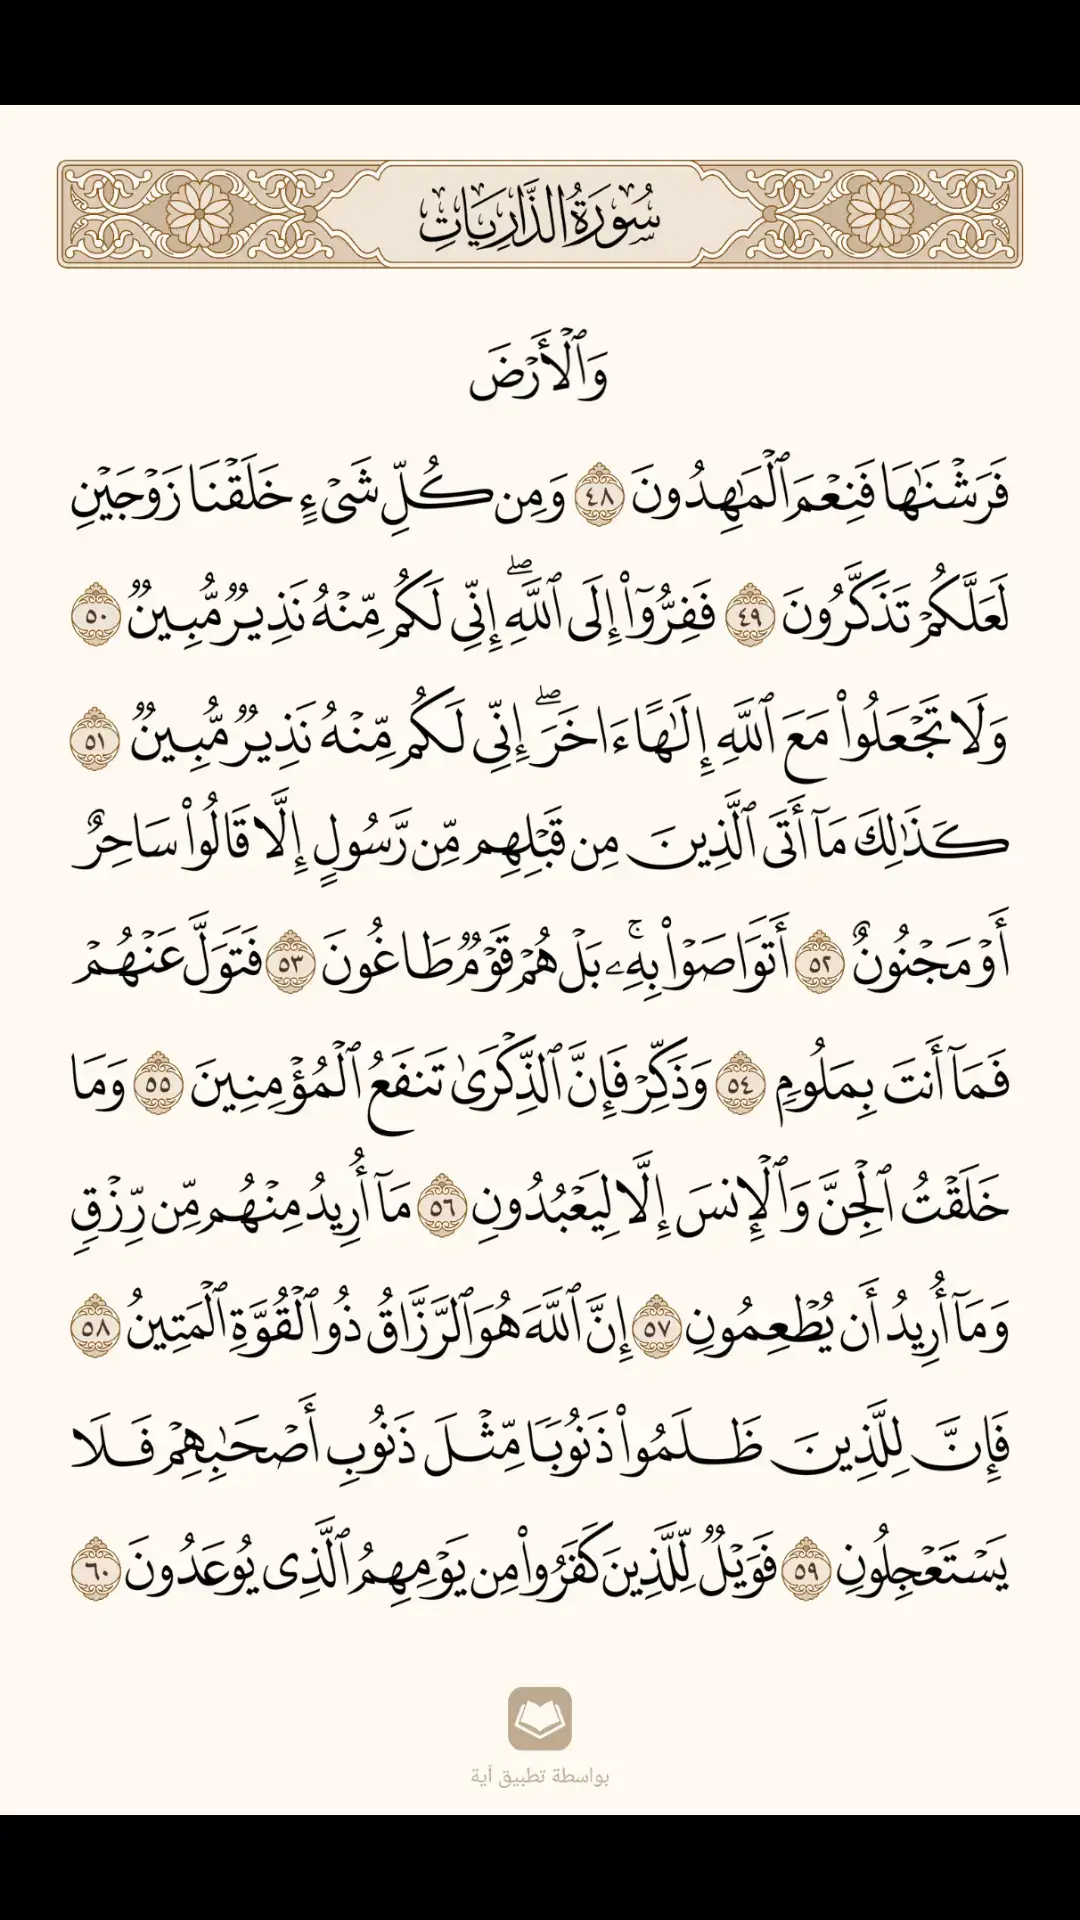 سُورَةُ الذَّارِيَاتِ
وَٱلۡأَرۡضَ
فَرَشۡنَٰهَا فَنِعۡمَ ٱلۡمَٰهِدُونَ ٤٨ وَمِن كُلِّ شَيۡءٍ خَلَقۡنَا زَوۡجَيۡنِ
لَعَلَّكُمۡ تَذَكَّرُونَ ٤٩ فَفِرُّوٓاْ إِلَى ٱللَّهِۖ إِنِّي لَكُم مِّنۡهُ نَذِيرٞ مُّبِينٞ ٥٠
وَلَا تَجۡعَلُواْ مَعَ ٱللَّهِ إِلَٰهًا ءَاخَرَۖ إِنِّي لَكُم مِّنۡهُ نَذِيرٞ مُّبِينٞ ٥١
كَذَٰلِكَ مَآ أَتَى ٱلَّذِينَ مِن قَبۡلِهِم مِّن رَّسُولٍ إِلَّا قَالُواْ سَاحِرٌ
أَوۡ مَجۡنُونٌ ٥٢ أَتَوَاصَوۡاْ بِهِۦۚ بَلۡ هُمۡ قَوۡمٞ طَاغُونَ ٥٣ فَتَوَلَّ عَنۡهُمۡ
فَمَآ أَنتَ بِمَلُومٖ ٥٤ وَذَكِّرۡ فَإِنَّ ٱلذِّكۡرَىٰ تَنفَعُ ٱلۡمُؤۡمِنِينَ ٥٥ وَمَا
خَلَقۡتُ ٱلۡجِنَّ وَٱلۡإِنسَ إِلَّا لِيَعۡبُدُونِ ٥٦ مَآ أُرِيدُ مِنۡهُم مِّن رِّزۡقٖ
وَمَآ أُرِيدُ أَن يُطۡعِمُونِ ٥٧ إِنَّ ٱللَّهَ هُوَ ٱلرَّزَّاقُ ذُو ٱلۡقُوَّةِ ٱلۡمَتِينُ ٥٨
فَإِنَّ لِلَّذِينَ ظَلَمُواْ ذَنُوبٗا مِّثۡلَ ذَنُوبِ أَصۡحَٰبِهِمۡ فَلَا
يَسۡتَعۡجِلُونِ ٥٩ فَوَيۡلٞ لِّلَّذِينَ كَفَرُواْ مِن يَوۡمِهِمُ ٱلَّذِي يُوعَدُونَ ٦٠
بواسطة تطبيق آية